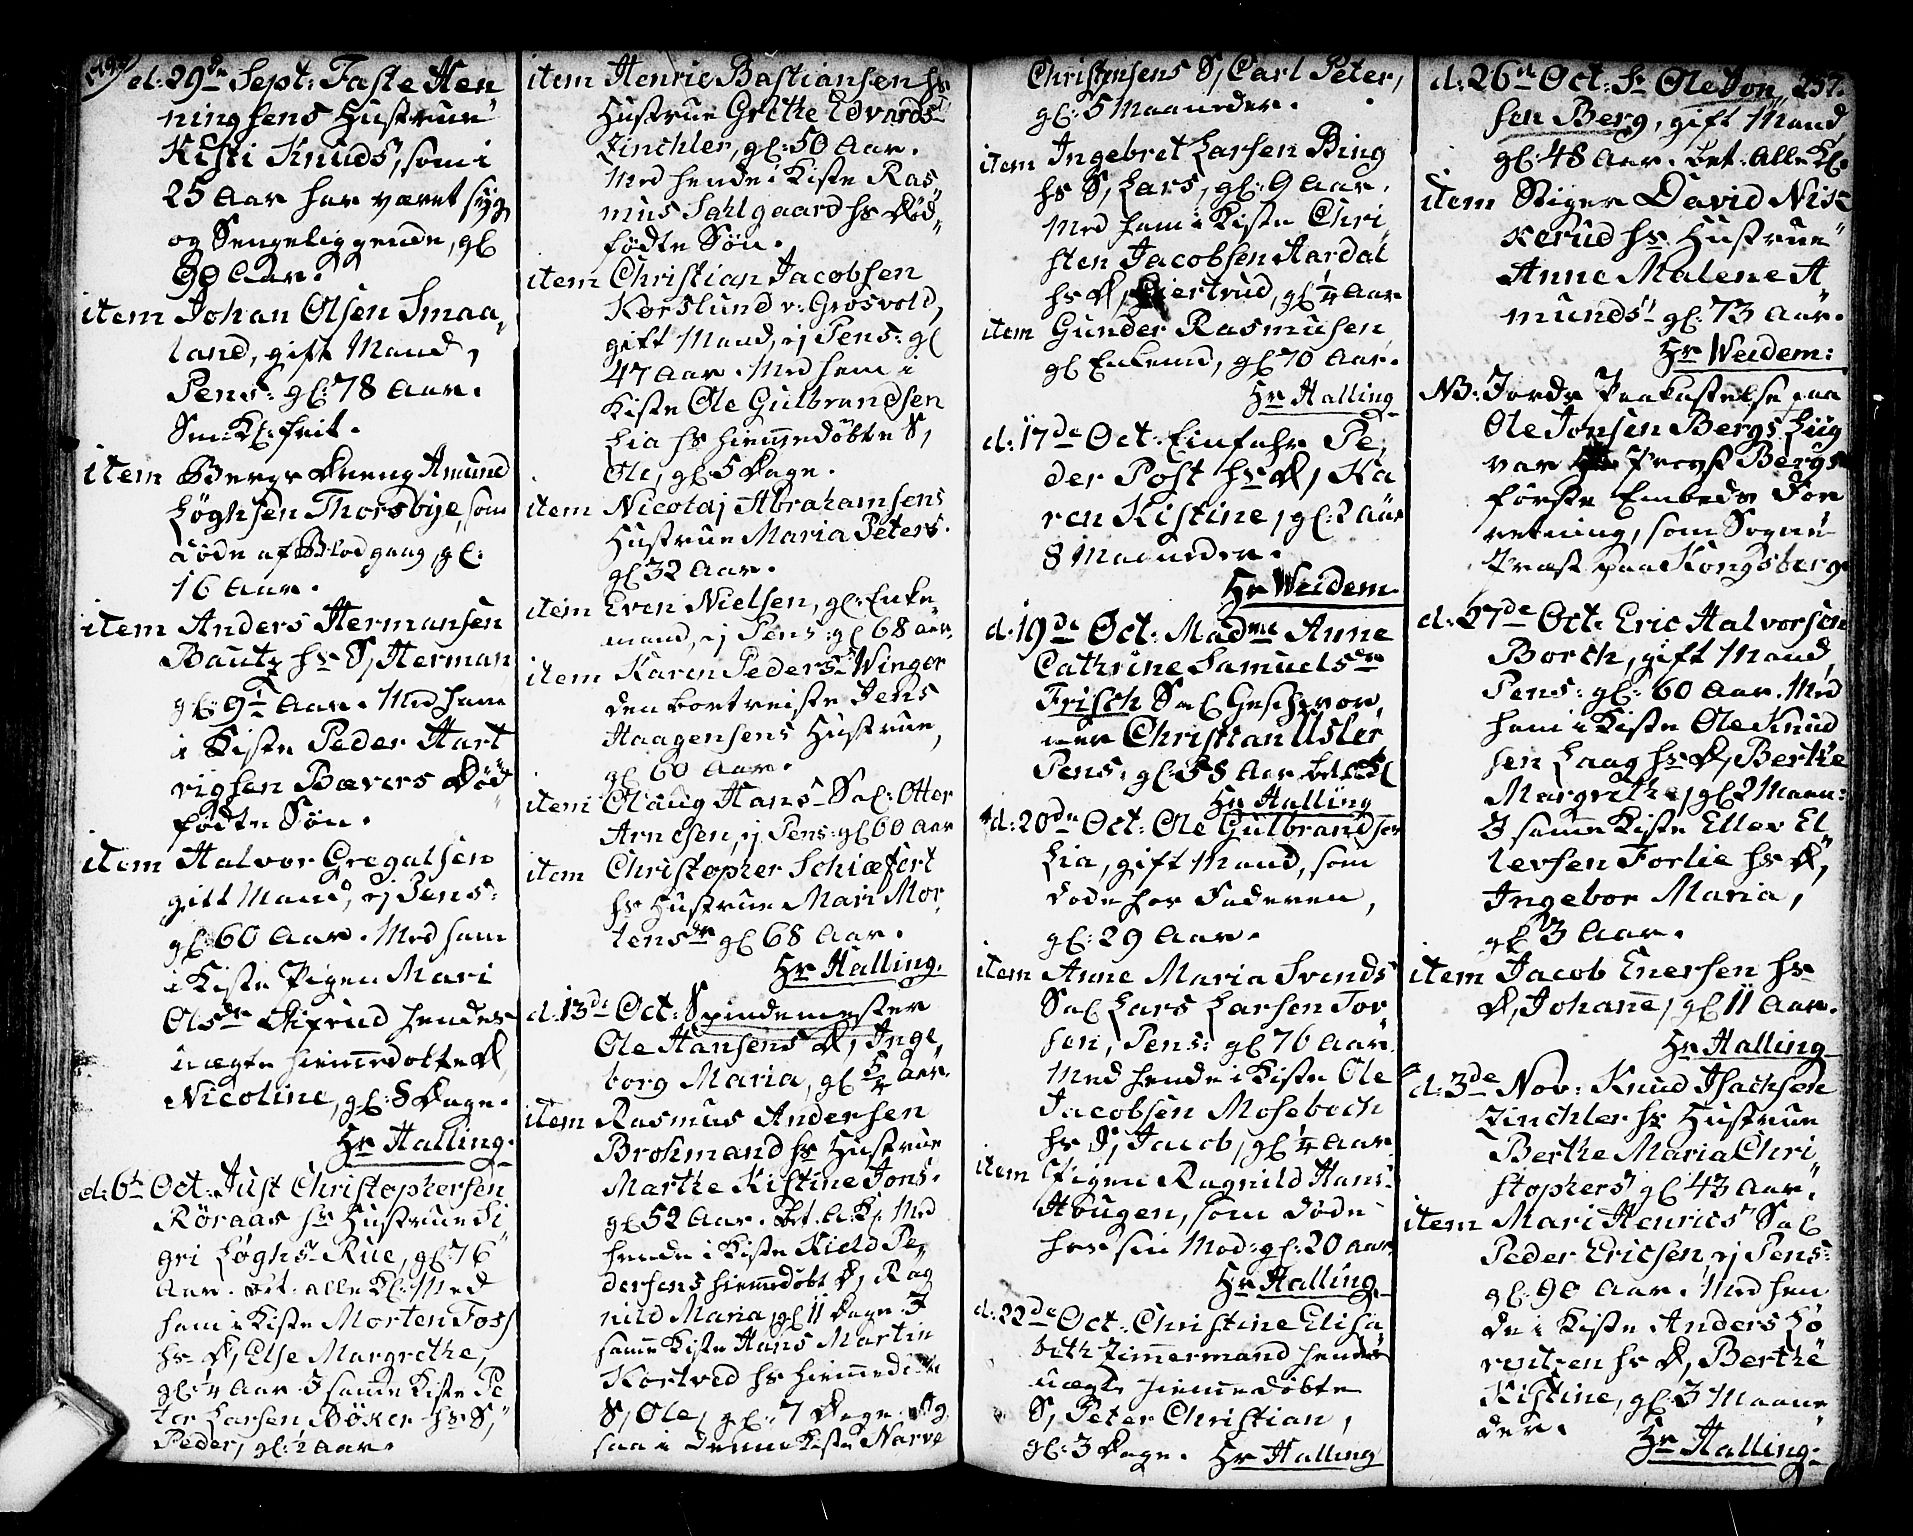 d: 29de Sept: Faste Hen
ningsens Hustrue
Kisti Knuds, som i
25 Aar har været syg
og Sengeliggende, gl
90 Aar.
item Johan Olsen Smaa,,
land, gift Mand,
Pens: gl: 78 Aar.
Sm: Kl: frit.
item Bergs Dreng Amund
Løghsen Thorsbye, som
døde af Blodgang, gl:
16 Aar.
item Anders Hermansen
Bautz hs S, Herman
gl: 9 Aar. Med ham
i Kiste Peder Hart
vigsen Bævers Død
fødte Søn.
item Halvor Gregalsen
gift Mand, ej Pens:
gl: 60 Aar. Med ham
i Kiste Pigen Mari
Olsdr hendes
uægte hiemmedøbte D,
Nicoline, gl: 8 Dage.
Hr Halling.
d: 6t Oct: Just Christophersen
Røraas hs Hustrue Si
gri Løghs Rue, gl: 76
Aar. Bet. alle Kl: Med
ham i Kiste Morten Foss
hs D, Else Margrethe,
gl: 1/4 Aar. I samme Kiste Pe
ter Larsen Bøker hs S,
Peder, gl: 1/2 Aar.
item Henric Bastiansen hs
Hustrue Grethe Edvards
Zinchler, gl: 50 Aar.
Med hende i Kiste Ras,,
mus Sahlgaard hs Død,,
fødte Søn.
item Christian Jacobsen
Korslund v: Grosvold,
gift Mand, ej Pens: gl
47 Aar. Med ham i
Kiste Ole Gulbrandsen
Lia hs hiemmedøbte S,
Ole, gl: 5 Dage.
item Nicolaj Abrahamsens
Hustrue Maria Peters.
gl 32 Aar.
item Even Nielsen, gl: Enke
mand, ej Pens: gl 68 Aar.
item Karen Peders Winger
den bortreiste Jens
Haagensens Hustrue,
gl 60 Aar.
item Olaug Hans Sal: Otter
Arnesen, ej Pens: gl 60 Aar
item Christopher Schiæfert
hs Hustrue Mari Mor,
tensdr gl 68 Aar.
Hr Halling.
d: 13de Oct: Spindemester
Ole Hansens D, Inge,
borg Maria, gl 5/4 Aar.
item Rasmus Andersen
Brohmand hs Hustrue
Marthe Kistine Jons.
gl 52 Aar. Bet. A: Kl, Med
hende i Kiste Kield Pe,,
dersens hiemmedøbt D, Rag
nild Maria, gl 11 Dage. I
samme Kiste Hans Martin
Kortved hs hiemmedøbte
S, Ole, gl: 7 Dage. Og
saa i denne Kiste Narve
Christensens S, Carl Peter,
gl: 5 Maaneder.
item Ingebret Larsen Bing
hs S, Lars, gl: 9 Aar.
Med ham i Kiste Chri
sten Jacobsen Aardal
hs D, Giertrud, gl 1/4 Aar
item Gunder Rasmusen
gl Enkemd, gl 70 Aar.
Hr Halling
d: 17de Oct: Einfahr Pe,
der Post hs D, Ka
ren Kistine, gl: 2 Aar
8 Maaneder.
Hr Weidem.
d: 19de Oct: Madme Anne
Cathrine Samuelsdr
Frisch Sal Geschvor,
ner Christian Usler,
Pens: gl: 58 Aar
Hr Halling
d: 20de Oct: Ole Gulbrandsen
Lia, gift Mand, som
døde hos Faderen,
gl: 29 Aar.
item Anne Maria Svends
Sal Lars Larsen Tor
sen, Pens: gl 76 Aar.
Med hende i Kiste Ole
Jacobsen Moseboch
hs S, Jacob, gl 1/4 Aar
item Pigen Ragnild Hans:
Haugen, som døde
hos sin Mod: gl: 20 Aar
Hr Halling.
d: 22de Oct: Christine Elisa
beth Zimmermand hendes
uægte hiemmedøbte
S, Peter Christian,
gl: 3 Dage. Hr Halling
d: 26de Oct: Sr Ole Jon,, 257.
sen Berg, gift Mand,
gl: 48 Aar. bet: alle Kl.
item Stiger David Nis
kerud hs Hustrue
Anne Malene A,,
munds gl: 73 Aar.
Hr Weidem:
NB: Jords Paakastelse paa
Ole Jonsen Bergs Liig
var Provst Bergs
første Embeds For
retning, som Sogne
Præst paa Kongsberg
d: 27de Oct: Eric Halvorsen
Borch, gift Mand,
Pens: gl: 60 Aar. Med
ham i Kiste Ole Knud
sen Laag hs D, Berthe
Margrethe, gl 2 Maan:
I samme Kiste Eller El,,
levsen Forlie hs D,
Ingebor Maria,
gl 3 Aar.
item Jacob Enersen hs
D, Johanne, gl 11 Aar.
Hr Halling
d: 3de Nov: Knud Isachsen
Zinchler hs Hustrue
Berthe Maria Chri,
stophers gl 43 Aar.
item Mari Henrics Sal
Peder Ericsen, ej Pens:
gl: 90 Aar. Med hen
de i Kiste Anders Lo
rentzen hs D, Berthe
Kistine, gl: 3 Maane
der.
Hr Halling.